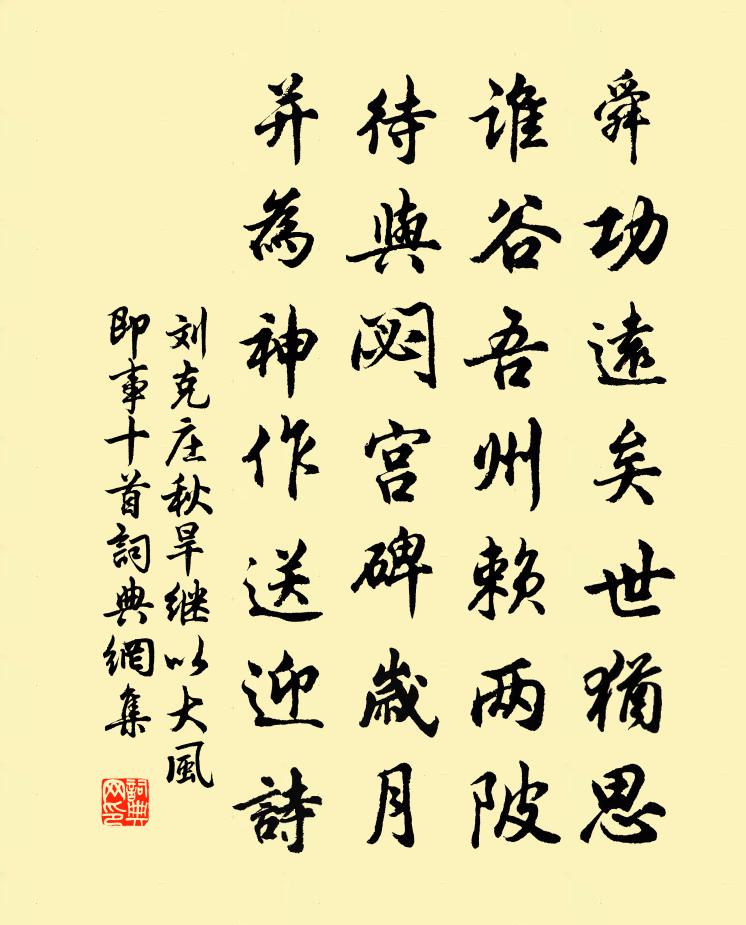 舜功遠矣世猶思
誰谷吾州賴两陂
待與閟宫碑歲月
并為神作送迎詩
刘克庄秋旱继以大風
即事十首詞典網集
詞典网印